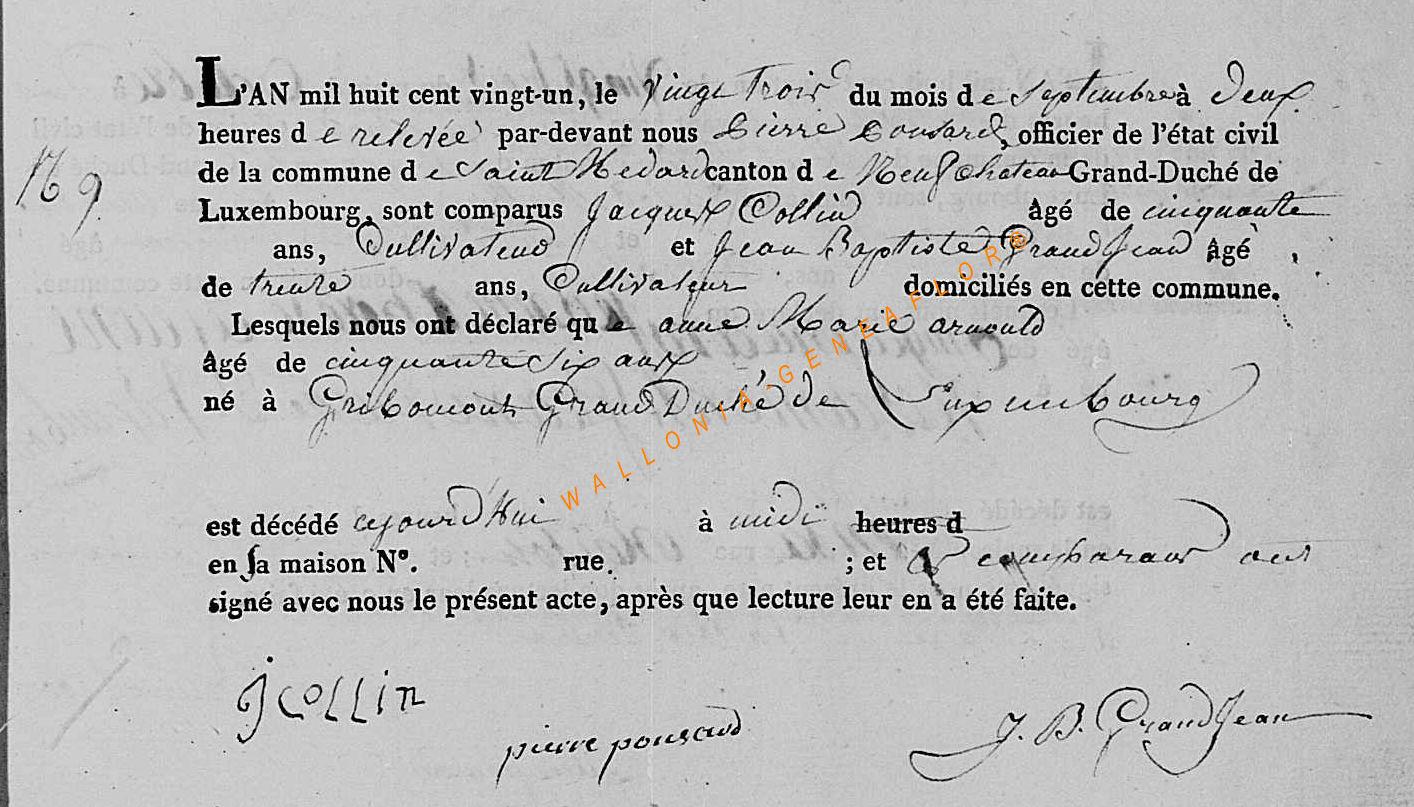 L'AN mil huit cent vingt-un, le vingt trois du mois de Septembre à deux
heures de relevée par-devant nous Pierre Pousard, officier de l'état civil
de la commune de Saint Medard canton de Neufchateau Grand-Duché de
Luxembourg, sont comparus Jacques Collin âgé de cinquante
ans, Cultivateur et Jean Baptiste GrandJean âgé
de trente ans, Cultivateur domiciliés en cette commune.
Lesquels nous ont déclaré que anne Marie arnould
N 9
âgé de cinquante six ans
né à Gribomont Grand Duché de Luxembourg
WALLONIA-GENEAFLORE
est décédé cejourd'hui à midi heures d
en sa maison N°. rue. ; et les comparans ont
signé avec nous le présent acte, après que lecture leur en a été faite.
J COLLIN
pierre pousard
J. B. GrandJean